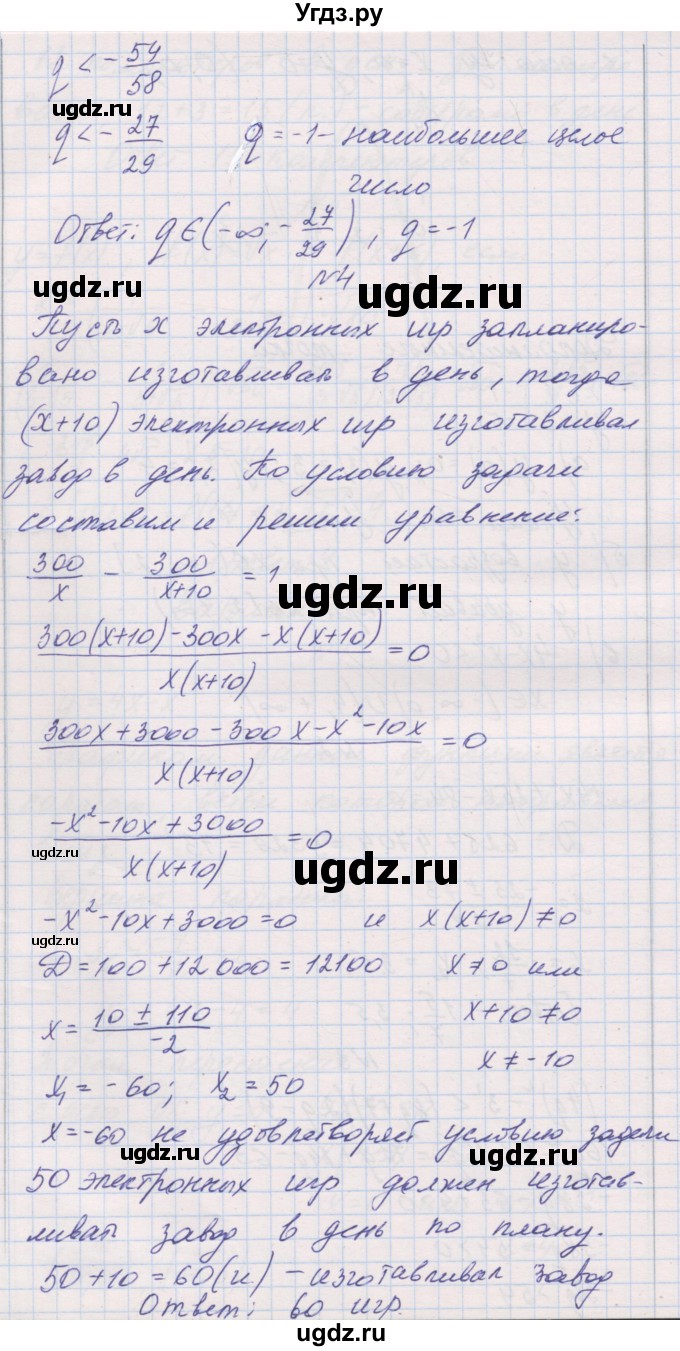 Угдз.ру
q < - 54/58
q < - 27/29 q = -1 - наибольшее целое
число
Ответ: q ∈ (-∞; - 27/29), q = -1
№4
Пусть х электронных игр запланиро-
вано изготавливать в день, тогда
(х+10) электронных игр изготавливал
завод в день. По условию задачи
составим и решим уравнение:
300/x - 300/(x+10) = 1
(300(x+10) - 300x - x(x+10))/(x(x+10)) = 0
(300x + 3000 - 300x - x² - 10x)/(x(x+10)) = 0
(-x² - 10x + 3000)/(x(x+10)) = 0
-x² - 10x + 3000 = 0 и x(x+10) ≠ 0
D = 100 + 12000 = 12100 x ≠ 0 или
x = (10 ± 110)/(-2) x + 10 ≠ 0
x ≠ -10
x₁ = -60; x₂ = 50
x = -60 не удовлетворяет условию задачи
50 электронных игр должен изготав-
ливать завод в день по плану.
50 + 10 = 60 (и) - изготавливал завод
Ответ: 60 игр.
ugdz.ru
ugdz.ru
ugdz.ru
ugdz.ru
ugdz.ru
ugdz.ru
ugdz.ru
ugdz.ru
ugdz.ru
ugdz.ru
ugdz.ru
ugdz.ru
ugdz.ru